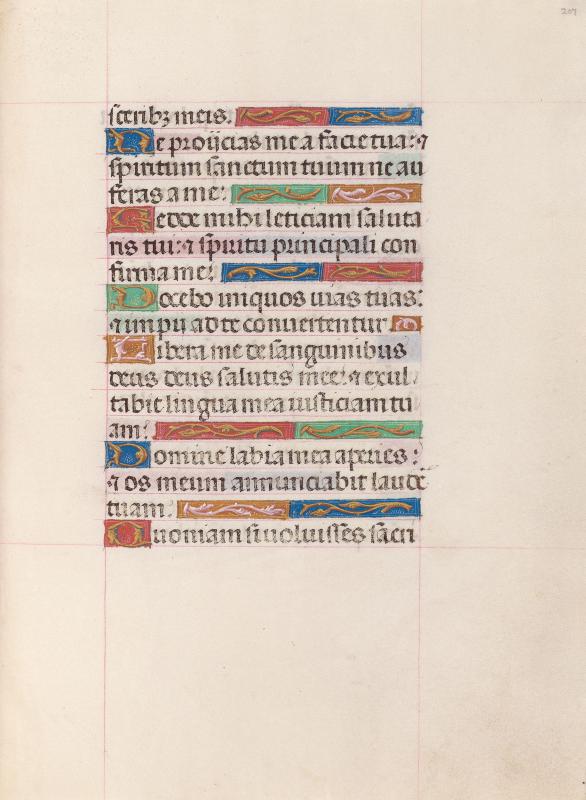 207
sceribꝫ meis.
Ne proijcias me a facie tua: ⁊
spiritum sanctum tuum ne au
feras a me:
Redde mihi leticiam saluta
ris tui: ⁊ spiritu principali con
firma me:
Docebo iniquos uias tuas:
⁊ impij ad te conuertentur
Libera me de sanguinibus
deus deus salutis mee: ⁊ exul
tabit lingua mea iusticiam tu
am:
Domine labia mea aperies:
⁊ os meum annunciabit laudē
tuam.
Quoniam si uoluisses sacri